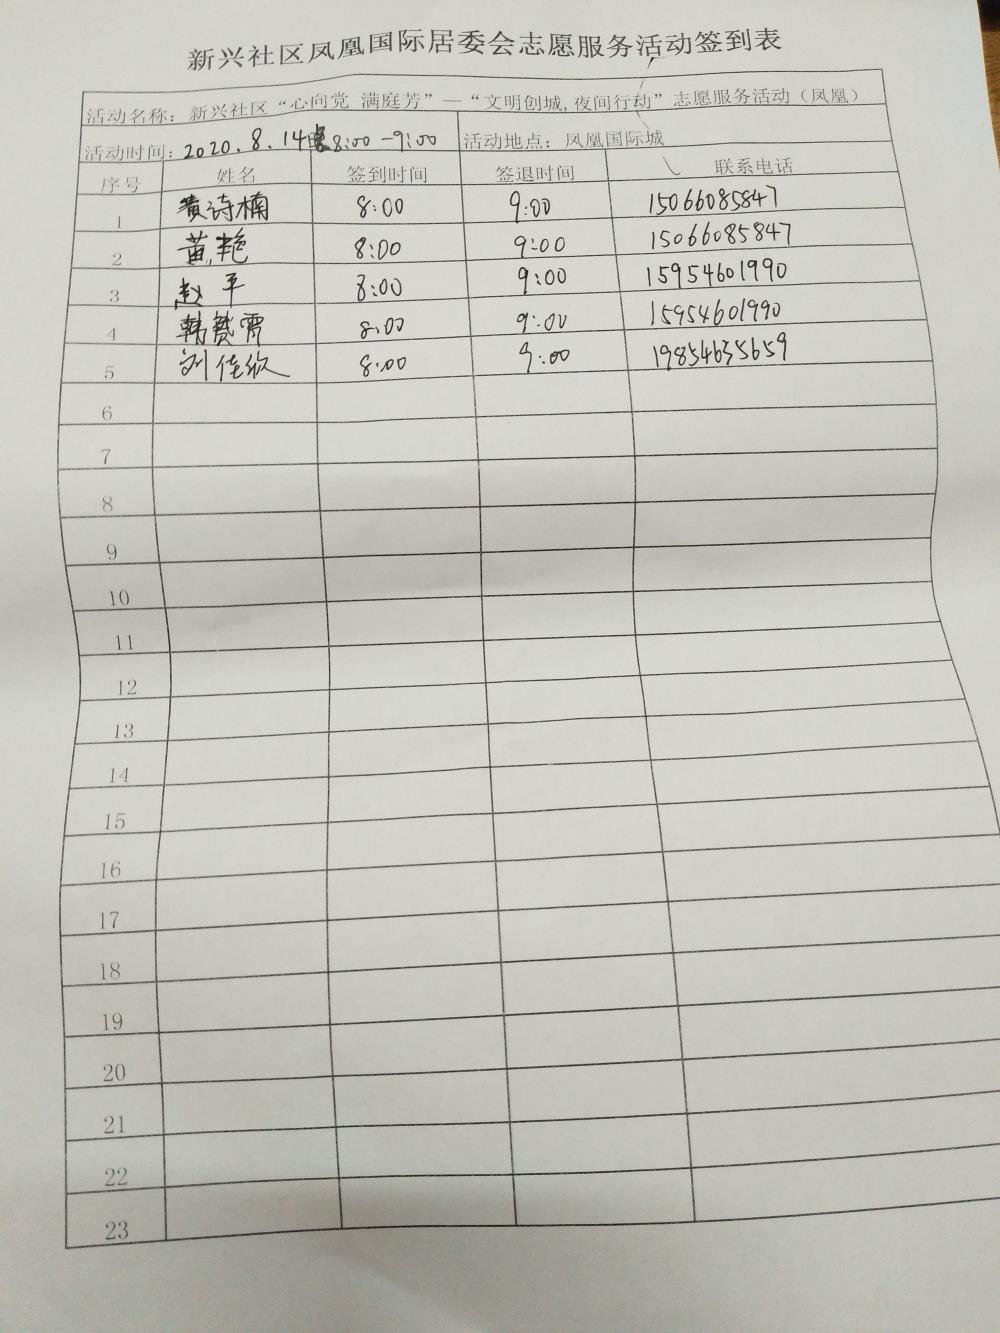 新兴社区凤凰国际居委会志愿服务活动签到表
活动名称：新兴社区“心向党 满庭芳”—“文明创城，夜间行动”志愿服务活动（凤凰）
活动时间：2020.8.14晚8:00-9:00 活动地点：凤凰国际城
序号 姓名 签到时间 签退时间 联系电话
1 黄诗楠 8:00 9:00 15066085847
2 黄艳 8:00 9:00 15066085847
3 赵平 8:00 9:00 15954601990
4 韩赟霄 8:00 9:00 15954601990
5 刘佳欣 8:00 9:00 19854635659
6
7
8
9
10
11
12
13
14
15
16
17
18
19
20
21
22
23